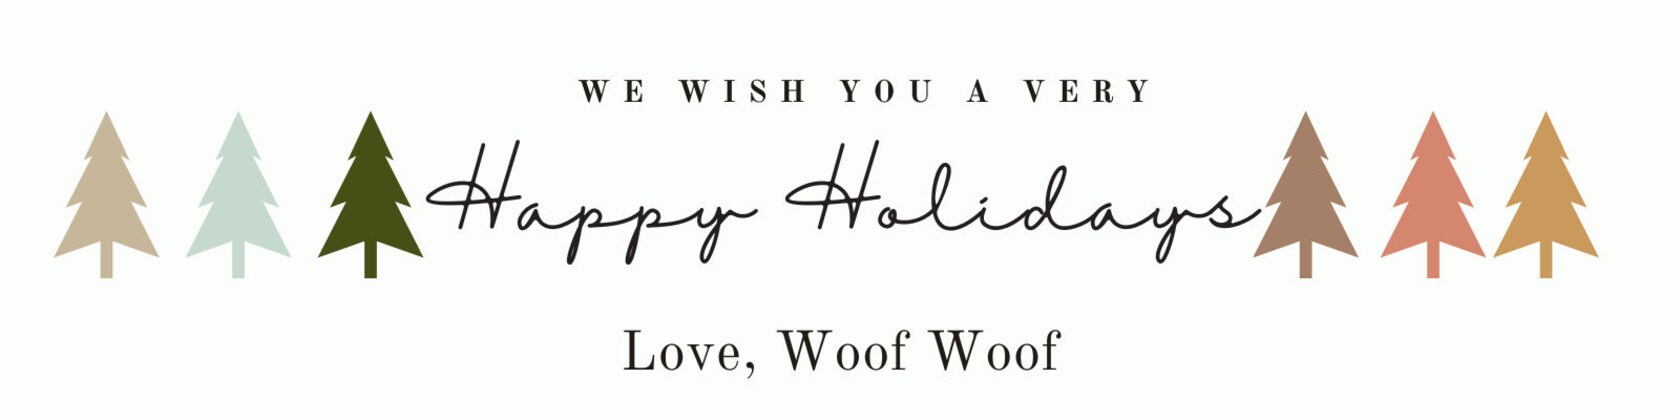 WE WISH YOU A VERY
Happy Holidays
Love, Woof Woof